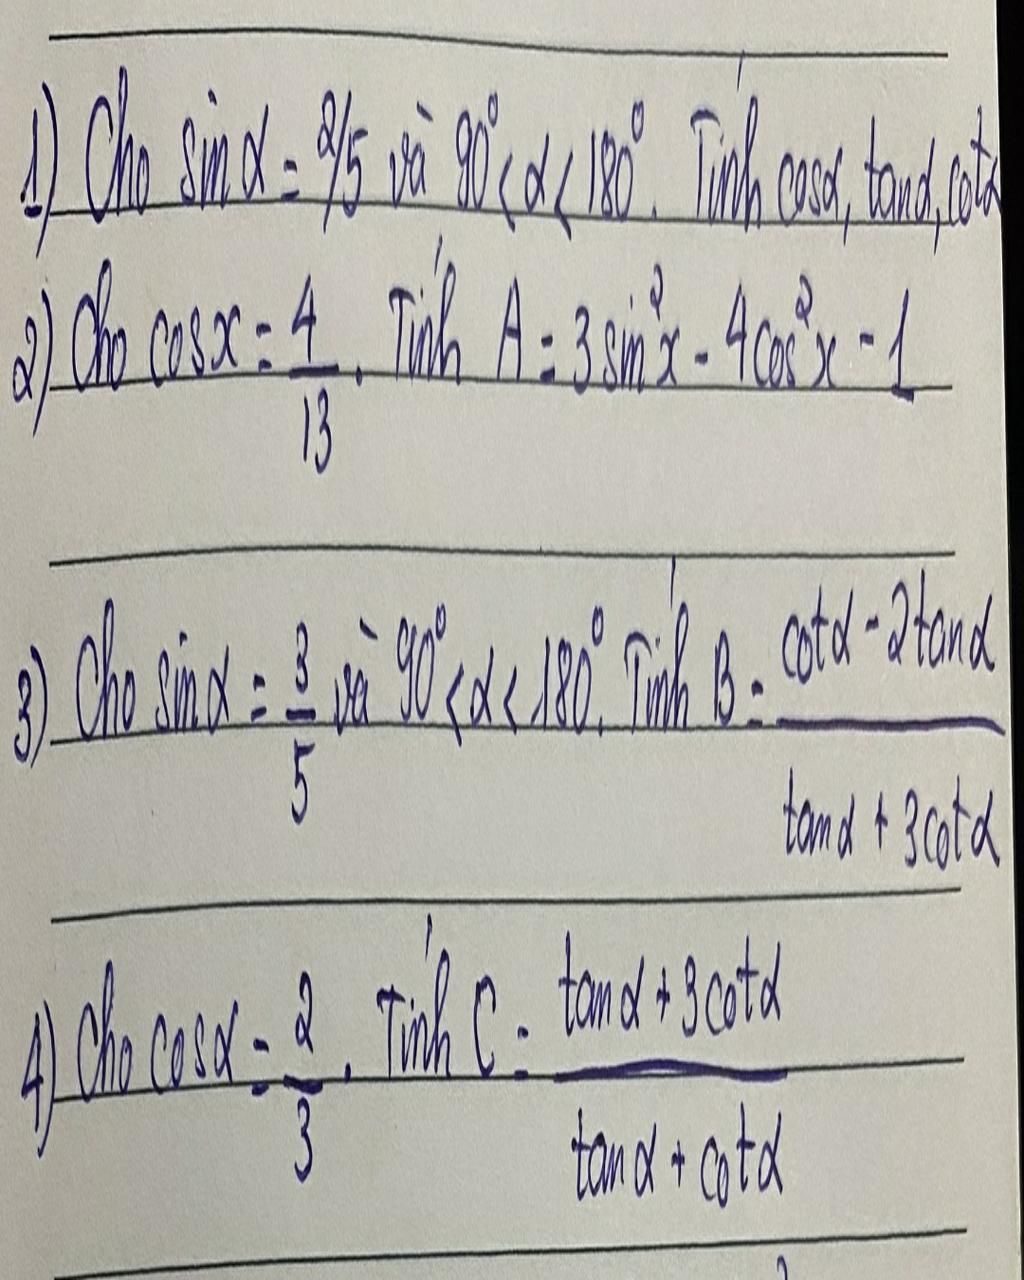 1) Cho sin α = 2/5 và 90° < α < 180°. Tính cosα, tanα, cotα
2) Cho cos x = 4/13. Tính A = 3 sin²x - 4cos²x - 1
3) Cho sin α = 3/5 và 90° < α < 180°. Tính B = (cotα - 2tanα)/(tanα + 3cotα)
4) Cho cosα = 2/3. Tính C = (tanα + 3cotα)/(tanα + cotα)